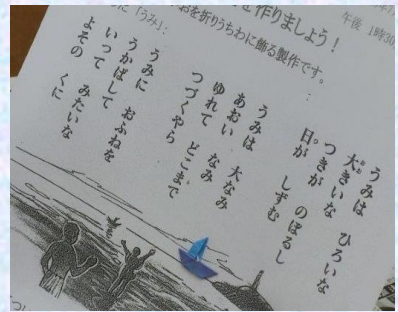 を作りましょう！
午後 1時30
に「うみ」:
おを折りうちわに飾る製作です。
うみは ひろいな
大きいな
つきが のぼるし
日が しずむ
うみは 大なみ
あおい なみ
ゆれて どこまで
つづくやら
うみに おふねを
うかばして
いって みたいな
よその くに